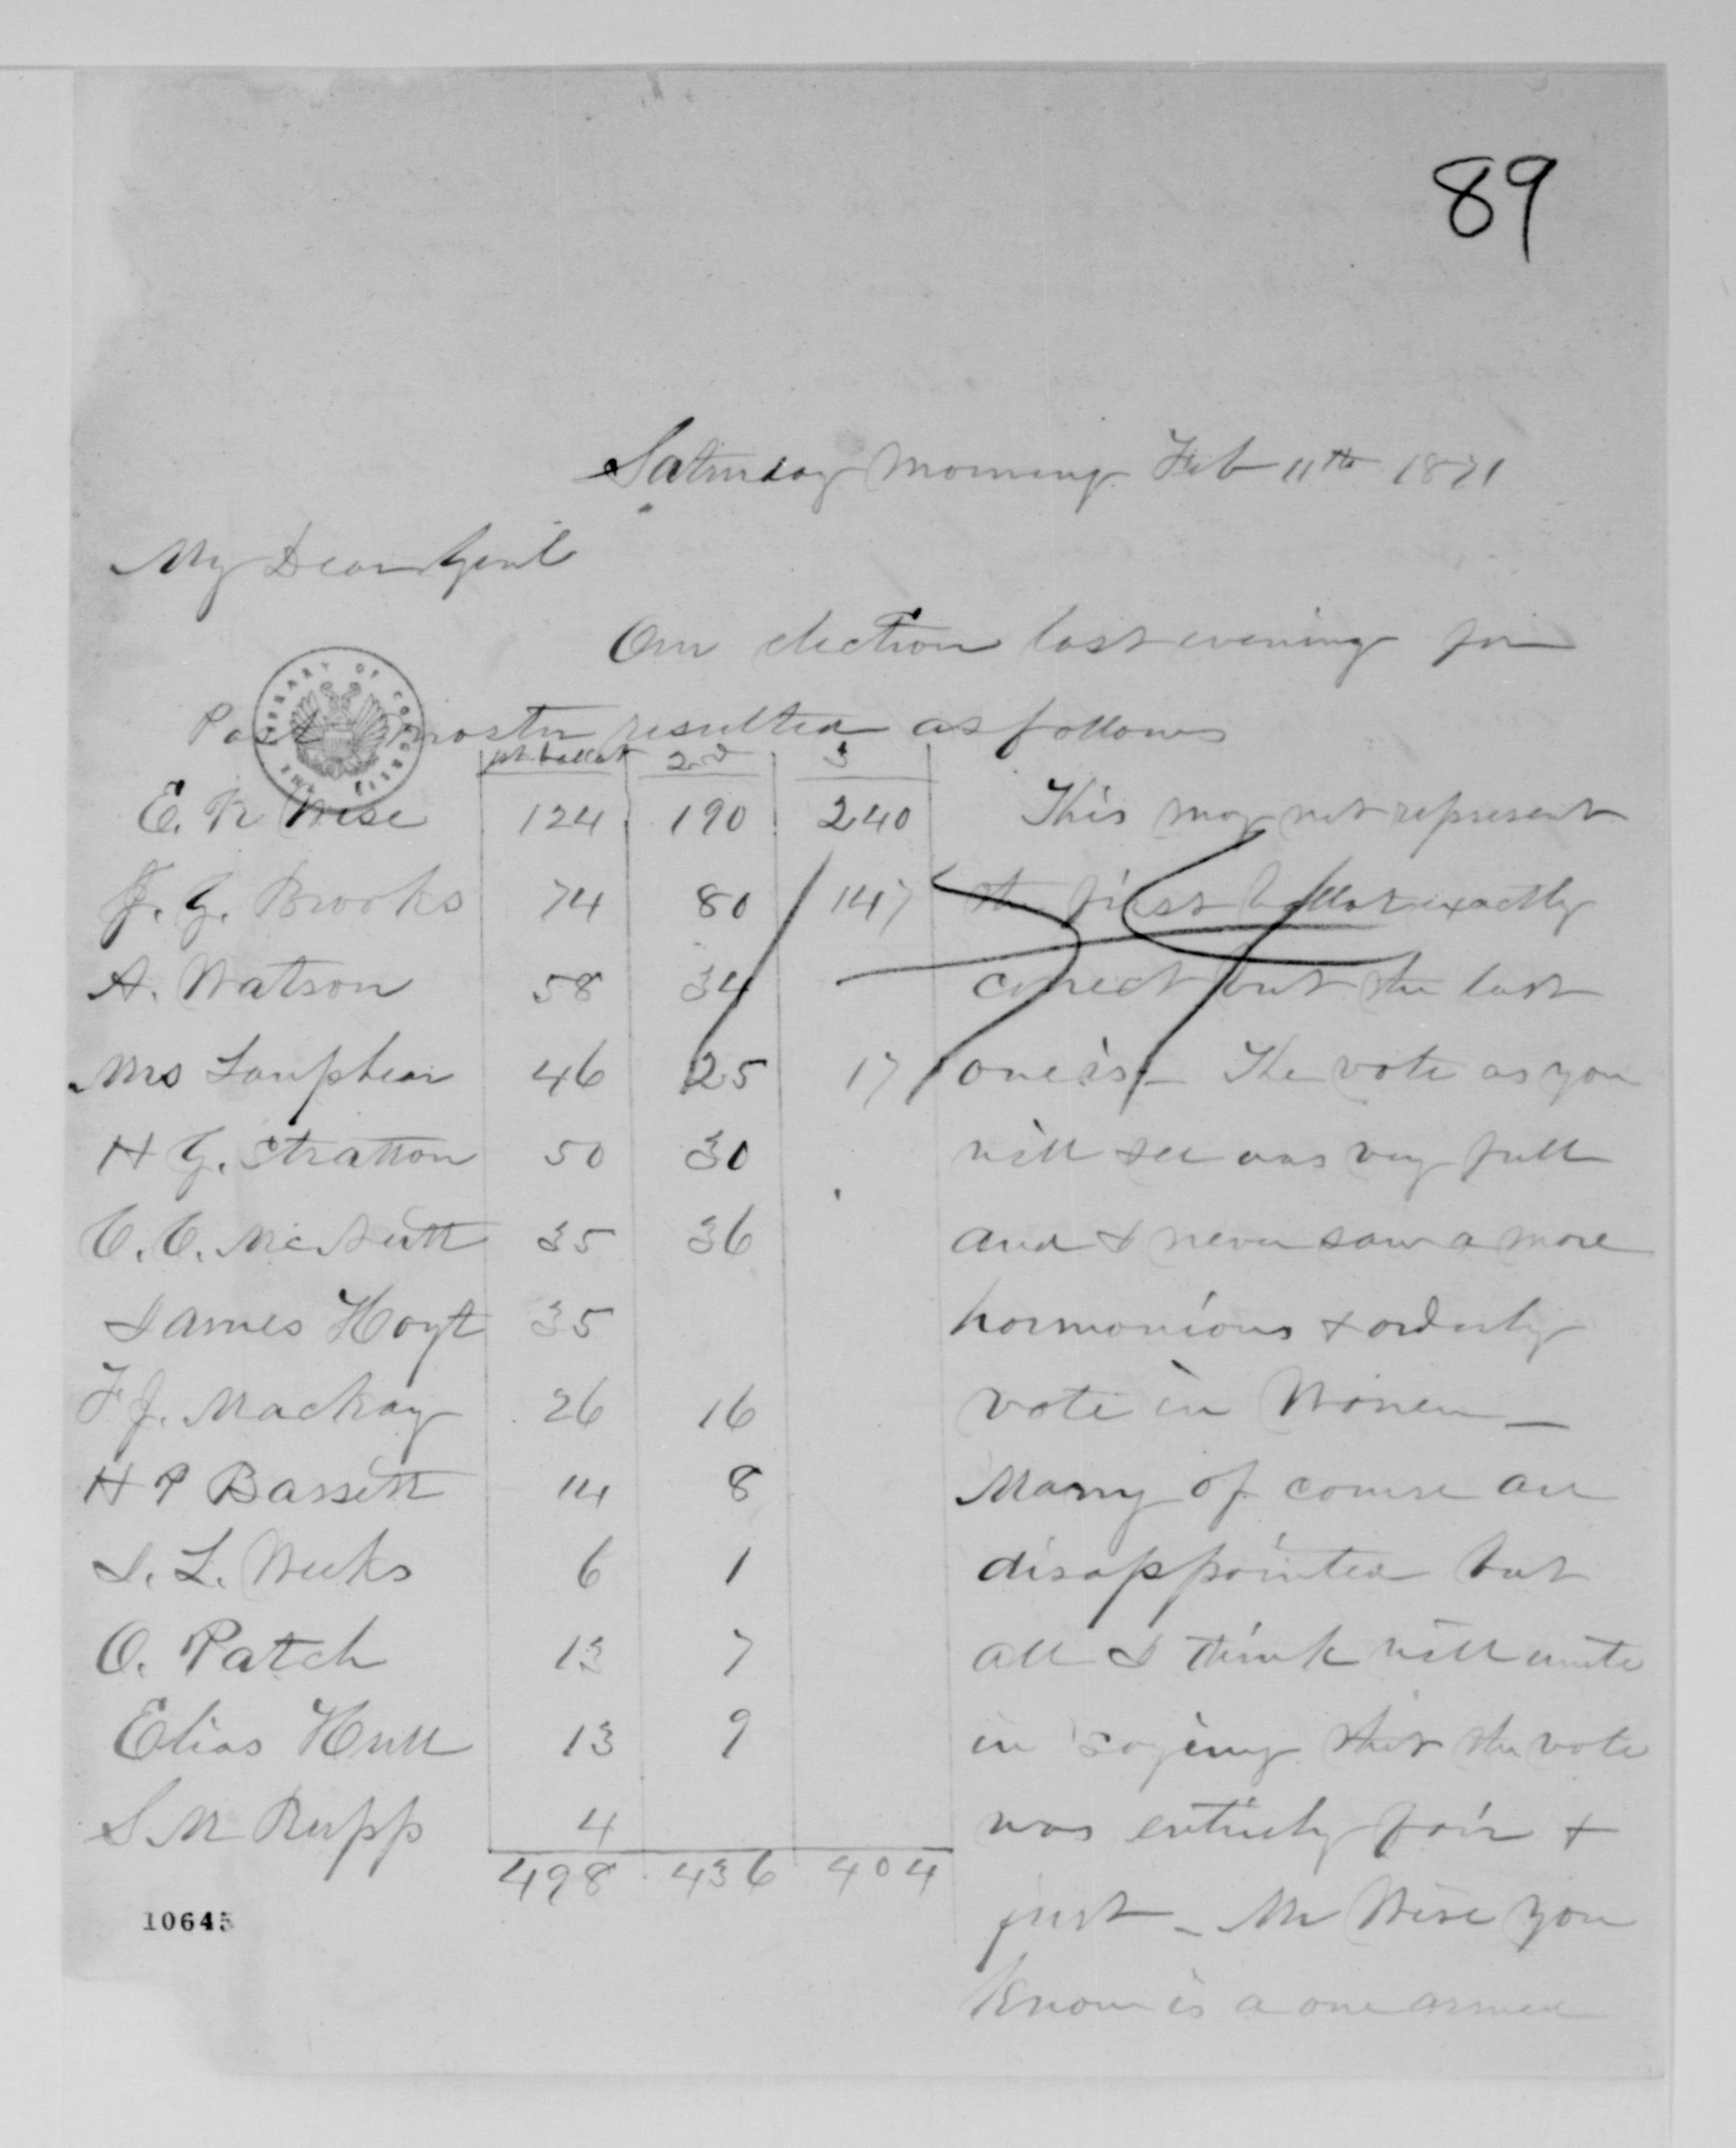 89
Saturday Morning Feb 11th 1871
My Dear Genl
Our election last evening for
Post master resulted as follows
1st ballot 2nd 3
E. R Wise 124 190 240 This may not represent
J. G. Brooks 74 80 147 the first ballot exactly
A. Watson 58 34 correct but the last
Mrs Lanphear 46 25 17 one is - The vote as you
H G. Stratton 50 30 will see was very full
C. C. McNutt 35 36 and I never saw a more
James Hoyt 35 harmonious & orderly
F J. Mackay 26 16 vote in Warren -
H P Bassett 14 8 Many of course are
I. L. Weeks 6 1 disappointed but
O. Patch 13 7 all I think will unite
Elias Hull 13 9 in saying that the vote
S M Rupp 4 was entirely fair &
498 436 404
just - Mr Wise you
10645
know is a one armed
THE LIBRARY OF CONGRESS